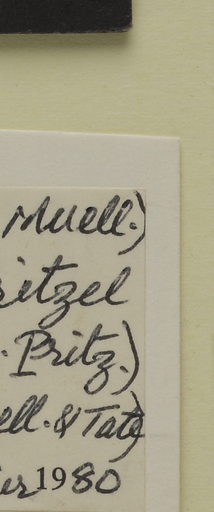 Muell.)
ritzel
. Pritz.)
ell. & Tate
er 1980